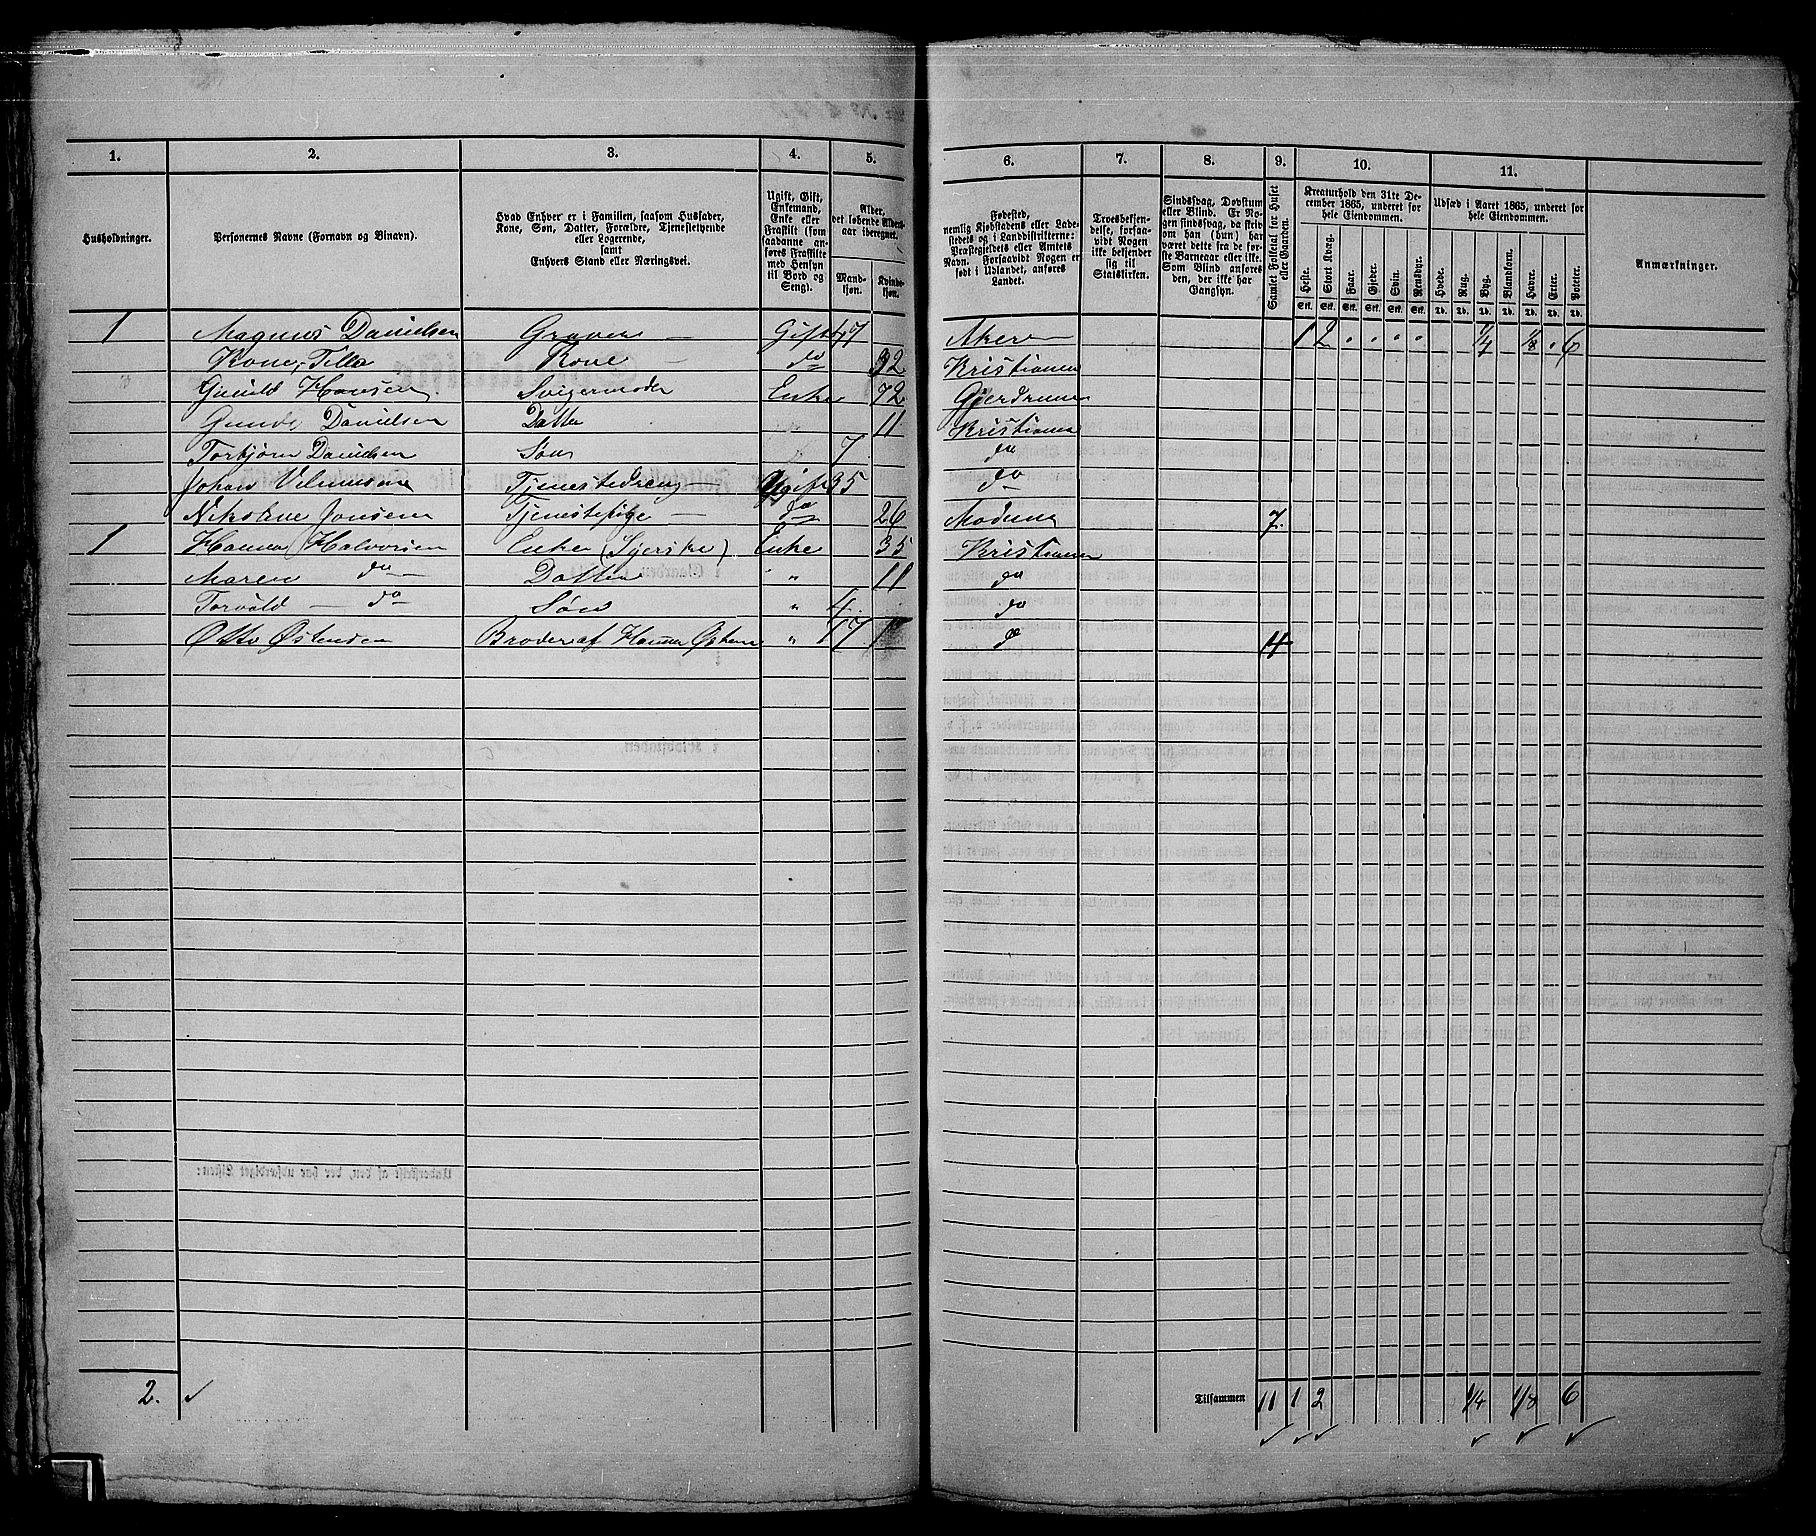 1. 2. 3. 4. 5. 6. 7. 8. 9. 10. 11.
Husholdninger.
Personernes Navne (Fornavn og Binavn).
Hvad Enhver er i Familien, saasom Husfader,
Kone, Søn, Datter, Forældre, Tjenestetyende
eller Logerende,
samt
Enhvers Stand eller Næringsvei.
Ugift, Gift,
Enkemand,
Enke eller
Fraskilt (som
saadanne an-
føres Fraskilte
med Hensyn
til Bord og
Seng).
Alder,
det løbende Alders-
aar iberegnet.
Mand-
kjøn.
Kvinde-
kjøn.
Fødested,
nemlig Kjøbstadens eller Lade-
stedets og i Landdistrikterne:
Præstegjeldets eller Amtets
Navn. Forsaavidt Nogen er
født i Udlandet, anføres
Landet.
Troesbekjen-
delse, forsaa-
vidt Nogen
ikke bekjender
sig til
Statskirken.
Sindssvag, Døvstum
eller Blind. Er No-
gen sindssvag, da skriv
om han (hun) har
været dette fra de før-
ste Barneaar eller ikke.
Som Blind anføres
den, der ikke har
Gangsyn.
Samlet Folketal for Huset
eller Gaarden.
Kreaturhold den 31te De-
cember 1865, underet for
hele Eiendommen.
Heste. Stort Kvæg. Faar. Gjeder. Svin. Rensdyr.
Stk. Stk. Stk. Stk. Stk. Stk.
Udsæd i Aaret 1865, underet for
hele Eiendommen.
Hvede. Rug. Byg. Blandkorn. Havre. Erter. Poteter.
Td. Td. Td. Td. Td. Td. Td.
Anmærkninger.
1 Magnus Danielsen Graver — Gift 47 Aker — 1 2 . . . . 1/4 1/8 . 6
Kone, Tilla Kone — do 32 Kristiania
Gunild Hansen Svigermoder Enke 72 Gjerdrum
Danielsen Datter 11 Kristiania
Torbjørn Danielsen Søn 7 do
Johan Tjenestedreng Ugift 35 do
Nikoline Jonsen Tjenestepige — do 26 Modum 7.
1 Hanna Halvorsen Enke (Syerske) Enke 35 Kristiania
Maren do — Datter " 11 do
Torvald — do — Søn " 4. do
Otto Østensen Broder af Hanna " 47 do 4
2. ✓
Tilsammen 11 1 2 1/4 1/8 6